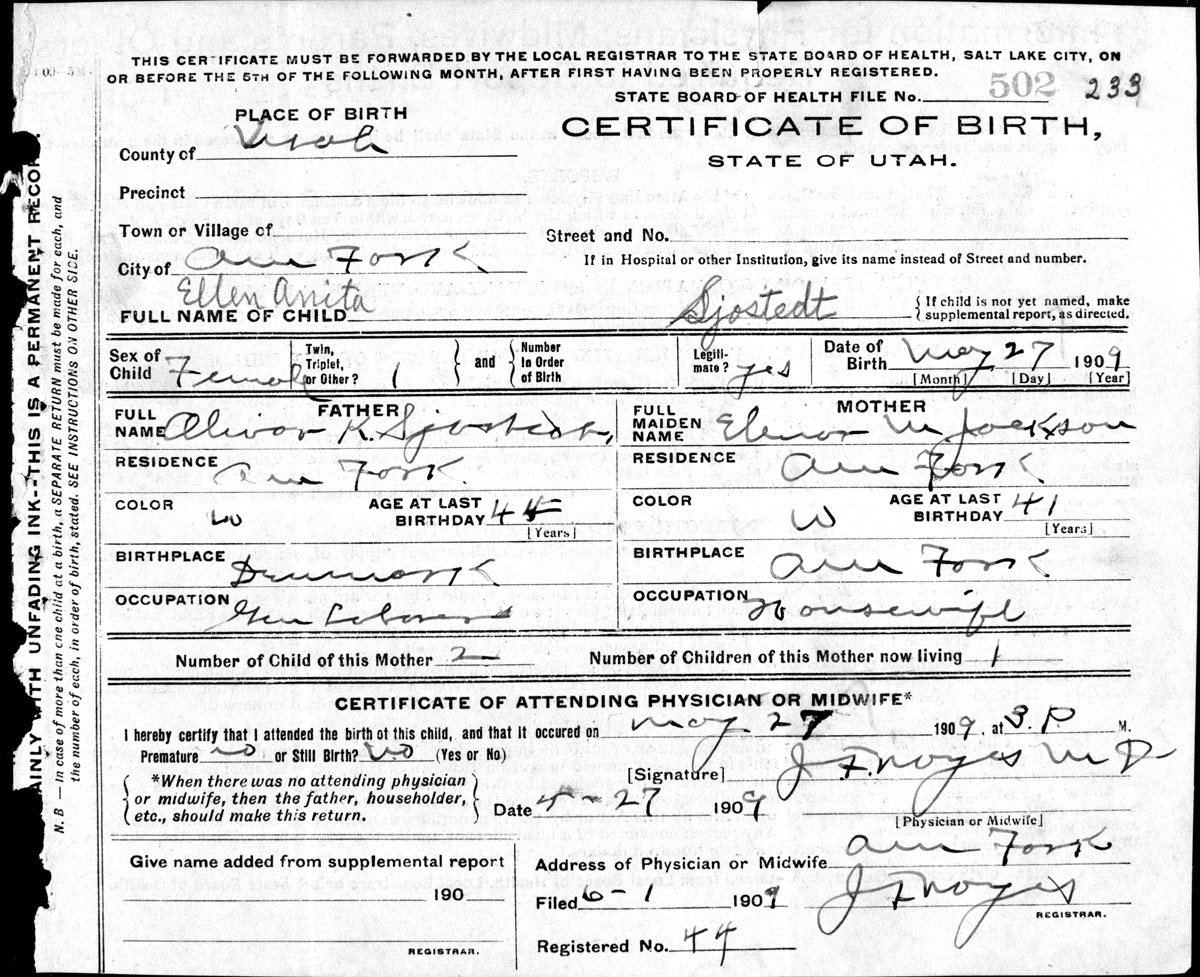 THIS CERTIFICATE MUST BE FORWARDED BY THE LOCAL REGISTRAR TO THE STATE BOARD OF HEALTH, SALT LAKE CITY, ON
OR BEFORE THE 5TH OF THE FOLLOWING MONTH, AFTER FIRST HAVING BEEN PROPERLY REGISTERED.
STATE BOARD OF HEALTH FILE No. 502 233
PLACE OF BIRTH
CERTIFICATE OF BIRTH,
STATE OF UTAH.
County of Utah
Precinct
Town or Village of
Street and No.
City of Am Fork
If in Hospital or other Institution, give its name instead of Street and number.
FULL NAME OF CHILD Ellen Anita Sjostedt
{ If child is not yet named, make
supplemental report, as directed.
Sex of Child Female
Twin, Triplet, or Other? 1 } and { Number in Order of Birth
Legitimate? yes
Date of Birth May 27 1909
[Month] [Day] [Year]
FATHER
FULL NAME Olivor K. Sjostedt,
RESIDENCE Am Fork
COLOR W
AGE AT LAST BIRTHDAY 44
[Years]
BIRTHPLACE Denmark
OCCUPATION Gen Laborer
MOTHER
FULL MAIDEN NAME Elenor M Jackson
RESIDENCE Am Fork
COLOR W
AGE AT LAST BIRTHDAY 41
[Years]
BIRTHPLACE Am Fork
OCCUPATION Housewife
Number of Child of this Mother 2 Number of Children of this Mother now living 1
CERTIFICATE OF ATTENDING PHYSICIAN OR MIDWIFE*
I hereby certify that I attended the birth of this child, and that it occured on May 27 1909, at 3 P. M.
Premature No or Still Birth? No (Yes or No)
[Signature] J F Noyes M D
[Physician or Midwife]
*When there was no attending physician
or midwife, then the father, householder,
etc., should make this return.
Date 5-27 1909
Give name added from supplemental report
190
REGISTRAR.
Address of Physician or Midwife Am Fork
Filed 6-1 1909 J F Noyes
REGISTRAR.
Registered No. 44
AINLY WITH UNFADING INK--THIS IS A PERMANENT RECOR
N. B — In case of more than one child at a birth, a SEPARATE RETURN must be made for each, and
the number of each, in order of birth, stated. SEE INSTRUCTIONS ON OTHER SIDE.